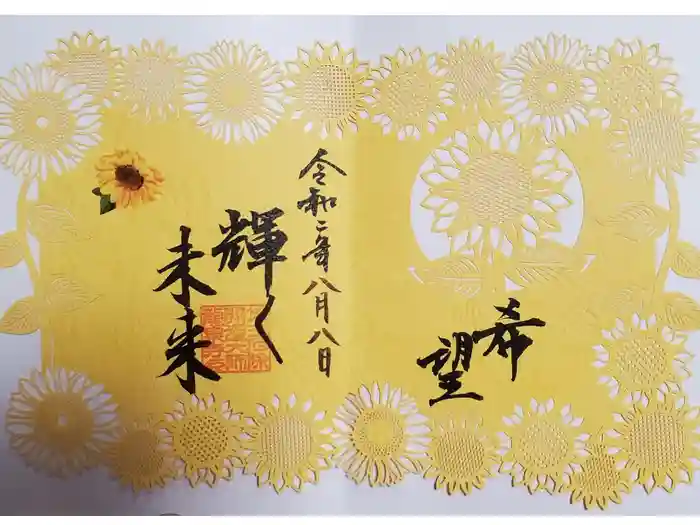 希望
令和二年八月八日
輝く
未来